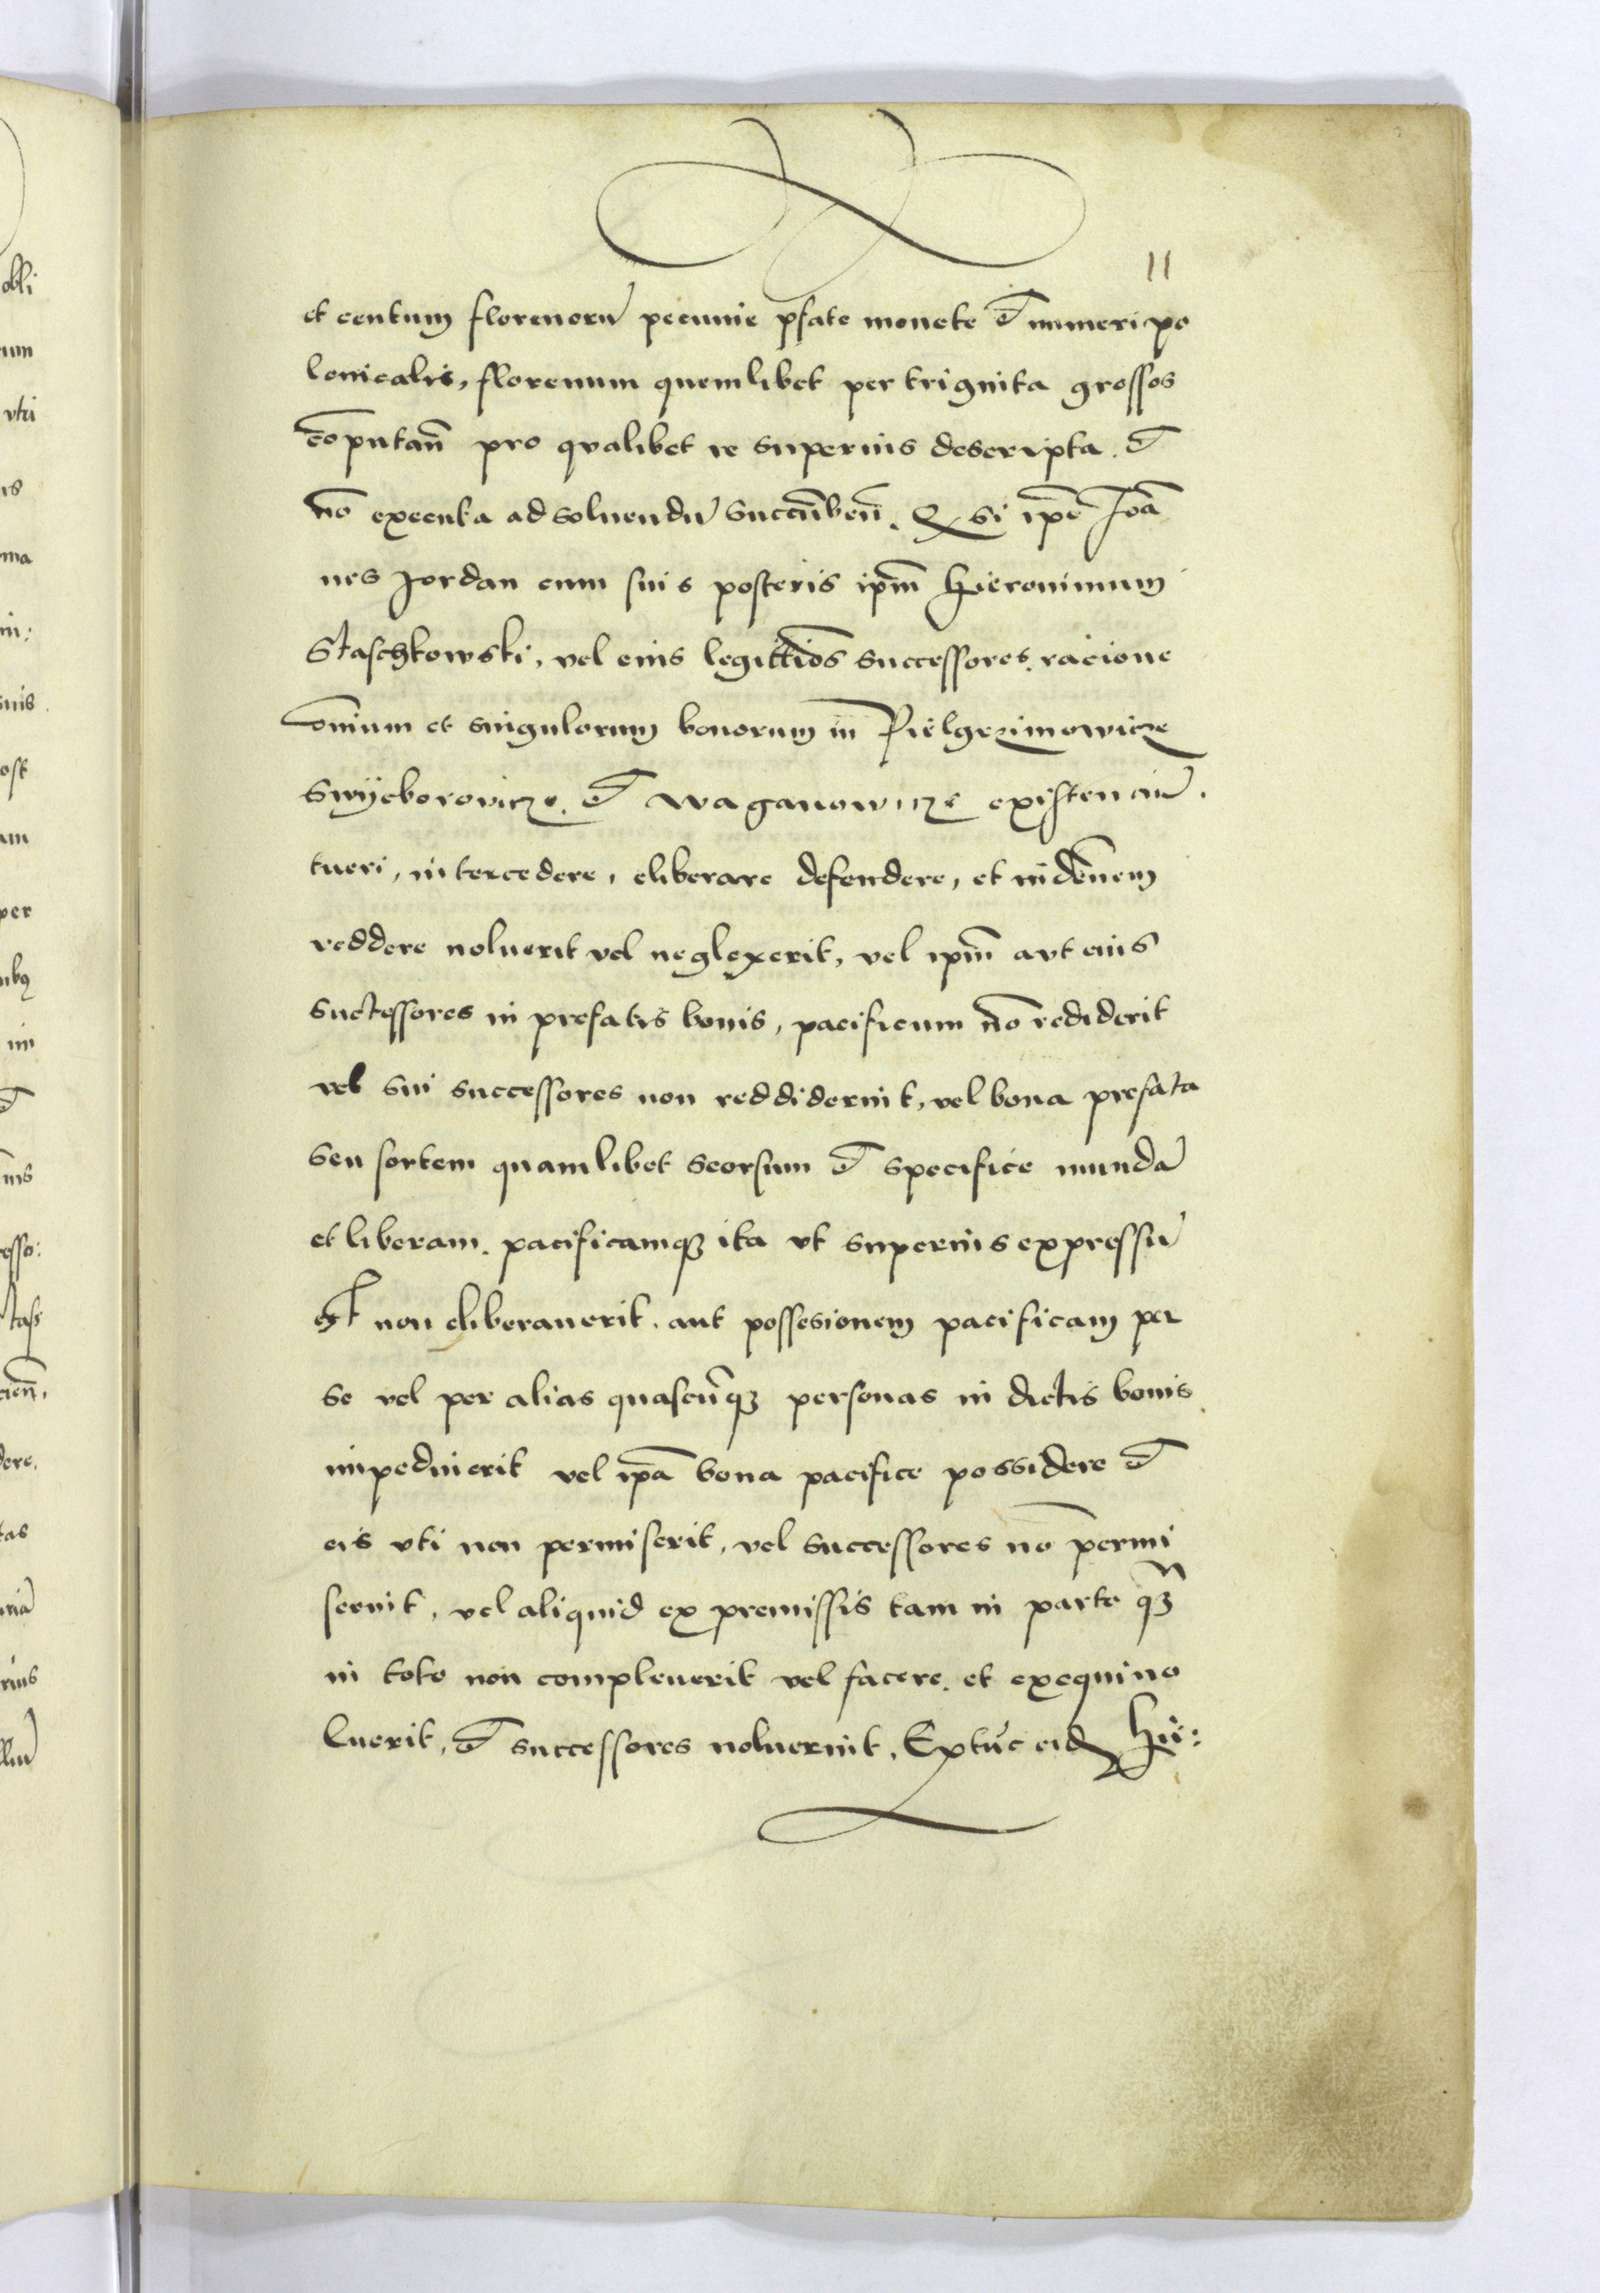 11
et centum florenorū pecunie pfate monete et̄ numeri po
lonicalis, florenum quemlibet per trignita grossos
cōputan̄ pro qvalibet re superius descripta. et̄
nō executa ad soluendū succūben̄. Q si ip̄e Joā
nes Jordan cum suis posteris ip̄m Hieronimum
Staschkowski, vel eius legittīos successores racione
om̄ium et singulorum bonorum in Pielgrzimowicze
Swÿeborovicze. et̄ waganowicze existenciū.
tueri, intercedere, eliberare defendere, et indēnem
reddere noluerit vel neglexerit, vel ip̄m avt eius
successores in prefatis bonis, pacificum nō rediderit
vel sui successores non reddiderint, vel bona prefata
seu sortem quamlibet seorsum et̄ specifice mundā
et liberam. pacificamqȝ ita vt superius expressū
est non eliberauerit. aut possesionem pacificam per
se vel per alias quascūqȝ personas in dictis bonis
impedmierit vel ip̄a bona pacifice possidere et̄
eis vti non permiserit, vel successores nō permi
serint, vel aliquid ex premissis tam in parte qȝ
in toto non compleuerit vel facere. et exequi no
luerit, et̄ successores noluerint, Extūc eid Hie:
obli
rum
vtri
is
ma
ni:
suis
ost
am
per
nibȝ
ni
et̄
nis
esso:
tasch
cien̄.
dere.
tas
riā
rius
llū